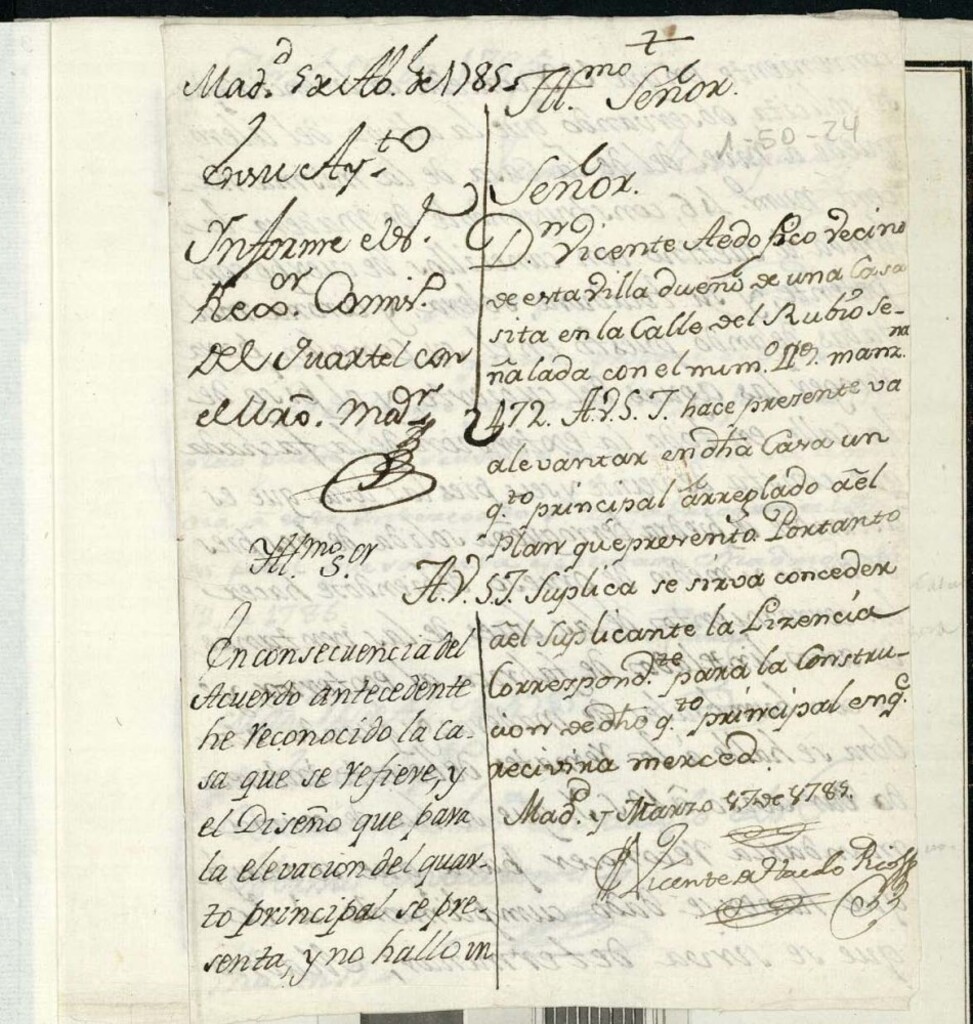 Mad.d 5 de Ab.l de 1785.
En su Ay.to
Informe el S.r
Rex.or Comis.o
Del Quartel con
el Mro. Mad.r
Ill.mo S.or
En consecuencia del
Acuerdo antecedente
he reconocido la ca-
sa que se refiere, y
el Diseño que para
la elevacion del quar-
to principal se pre
senta, y no hallo in
Ill.mo Señor.
1-50-24
Señor.
D.n Vicente Aedo Rico vecino
de esta villa dueño de una Casa
sita en la Calle del Rubio se-
ñalada con el num.o manz.na
472. A.V.S.I. hace presente va
alevantar en dha Casa un
q.to principal arreglado ael
plan que presento Portanto
A.V.S.I. Suplica se sirva conceder
ael Suplicante la Lizencia
Correspond.te para la Constru-
cion de dho q.to principal en q.e
recivira merced.
Mad.d y Marzo 17 de 1785.
Vicente de Haedo Rico